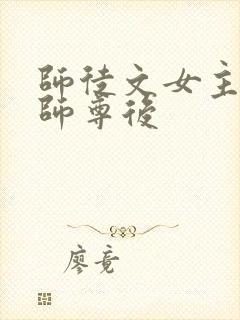 師徒文女主
師尊後
廖竟